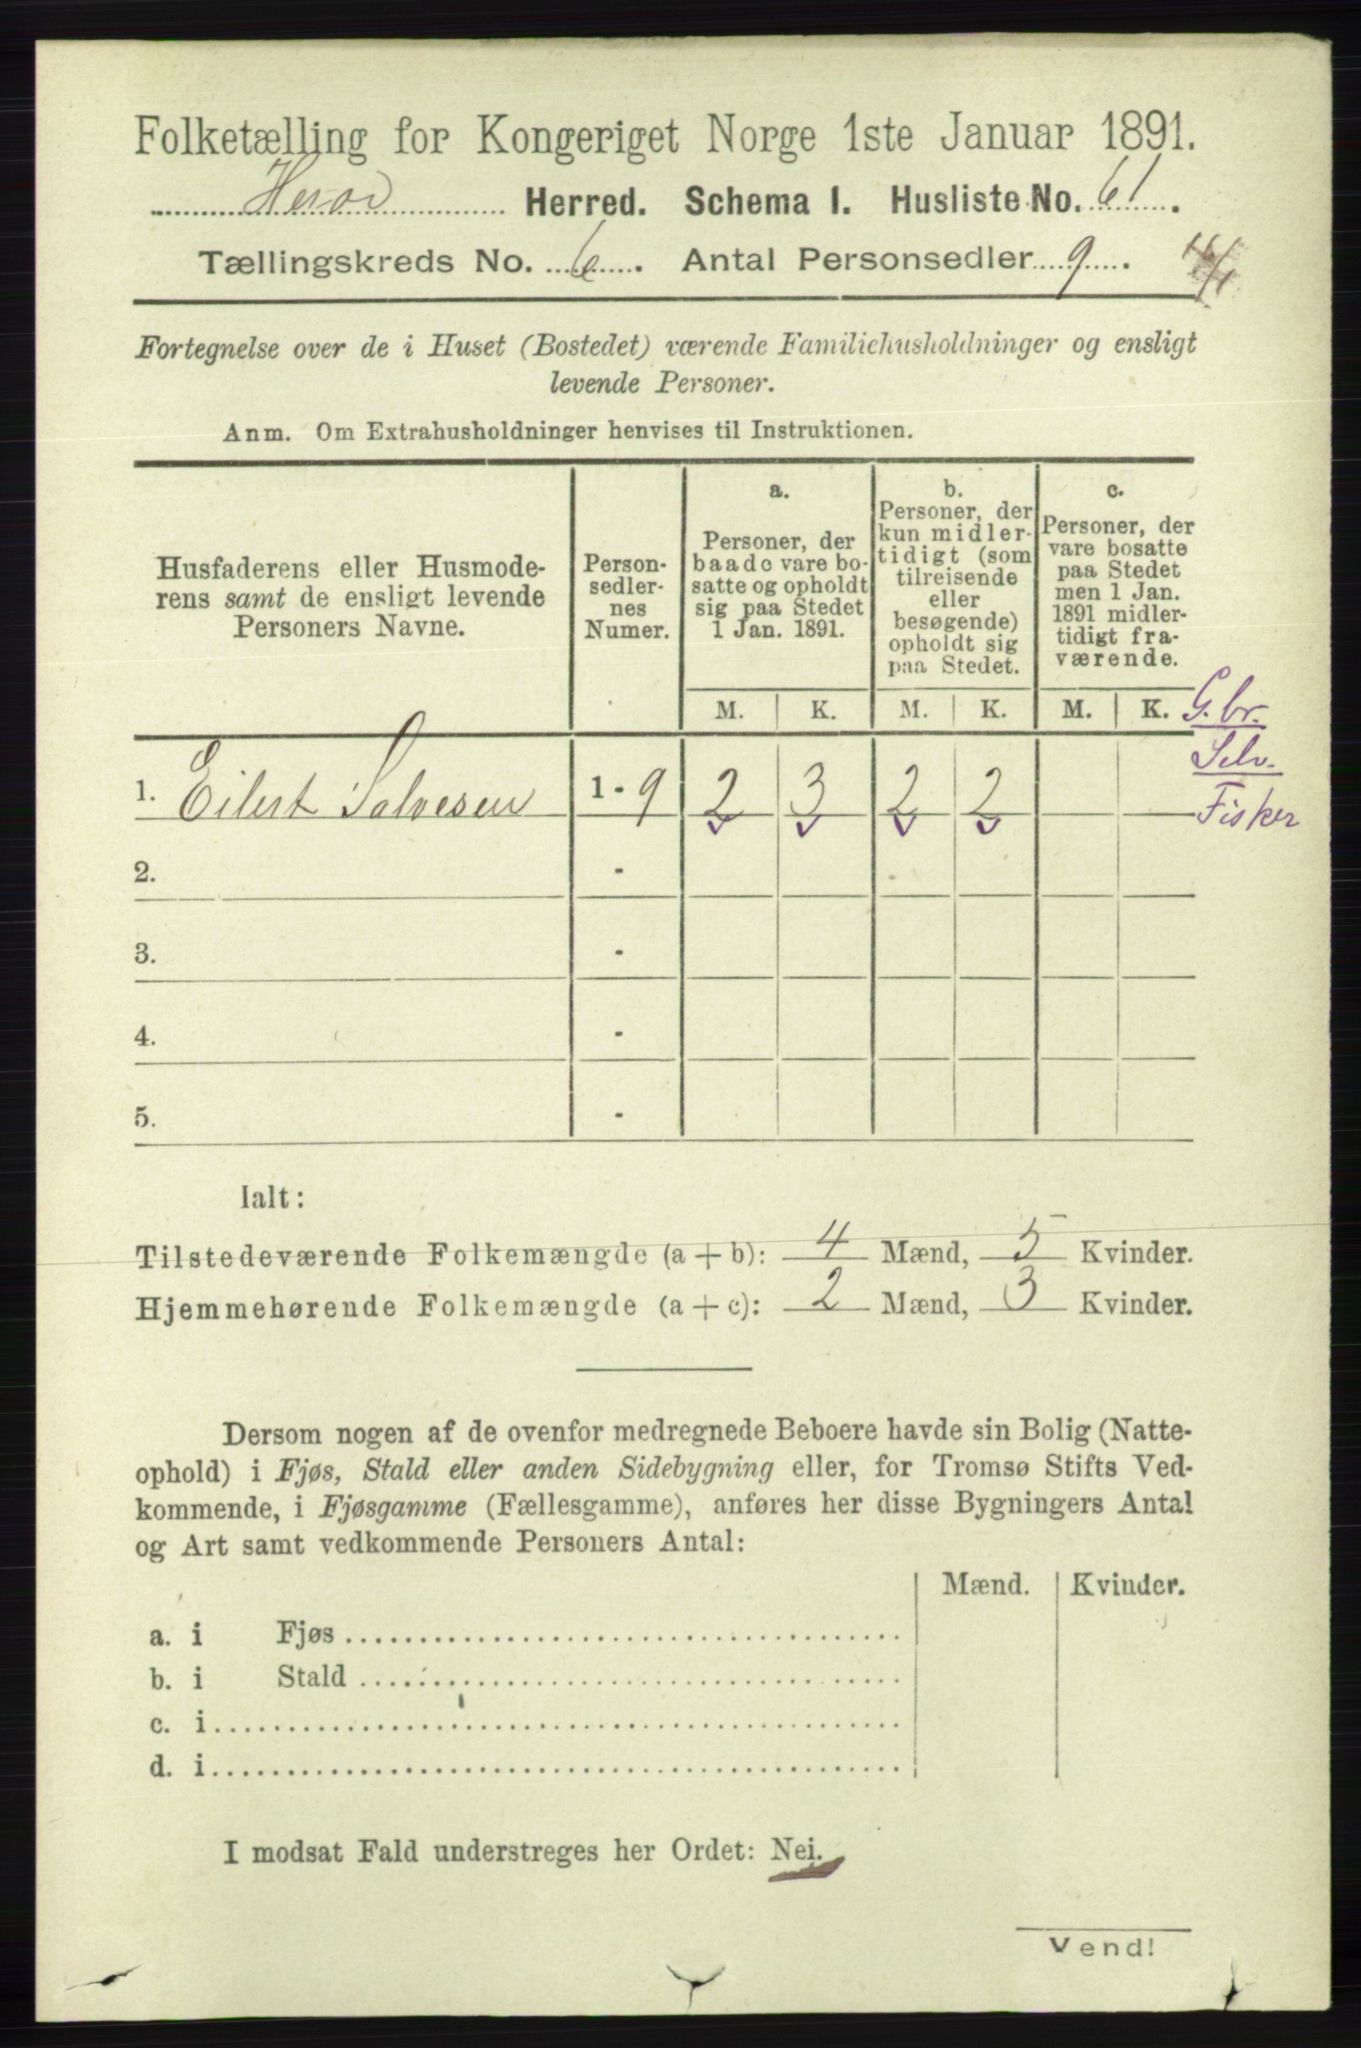 Folketælling for Kongeriget Norge 1ste Januar 1891.
Herred. Schema I. Husliste No. 61.
Tællingskreds No. 6. Antal Personsedler 9.
Fortegnelse over de i Huset (Bostedet) værende Familiehusholdninger og ensligt
levende Personer.
Anm. Om Extrahusholdninger henvises til Instruktionen.
Husfaderens eller Husmode-
rens samt de ensligt levende
Personers Navne.
Person-
sedler-
nes
Numer.
a.
Personer, der
baade vare bo-
satte og opholdt
sig paa Stedet
1 Jan. 1891.
b.
Personer, der
kun midler-
tidigt (som
tilreisende
eller
besøgende)
opholdt sig
paa Stedet.
c.
Personer, der
vare bosatte
paa Stedet
men 1 Jan.
1891 midler-
tidigt fra-
værende.
M. K. M. K. M. K. G.br.
Selv.
1. Eilert Salvesen 1 - 9 2 3 2 2 Fisker
2. -
3. -
4. -
5. -
Ialt:
Tilstedeværende Folkemængde (a + b): 4 Mænd, 5 Kvinder.
Hjemmehørende Folkemængde (a + c): 2 Mænd, 3 Kvinder.
Dersom nogen af de ovenfor medregnede Beboere havde sin Bolig (Natte-
ophold) i Fjøs, Stald eller anden Sidebygning eller, for Tromsø Stifts Ved-
kommende, i Fjøsgamme (Fællesgamme), anføres her disse Bygningers Antal
og Art samt vedkommende Personers Antal:
Mænd. Kvinder.
a. i Fjøs
b. i Stald
c. i
d. i
I modsat Fald understreges her Ordet: Nei.
Vend!